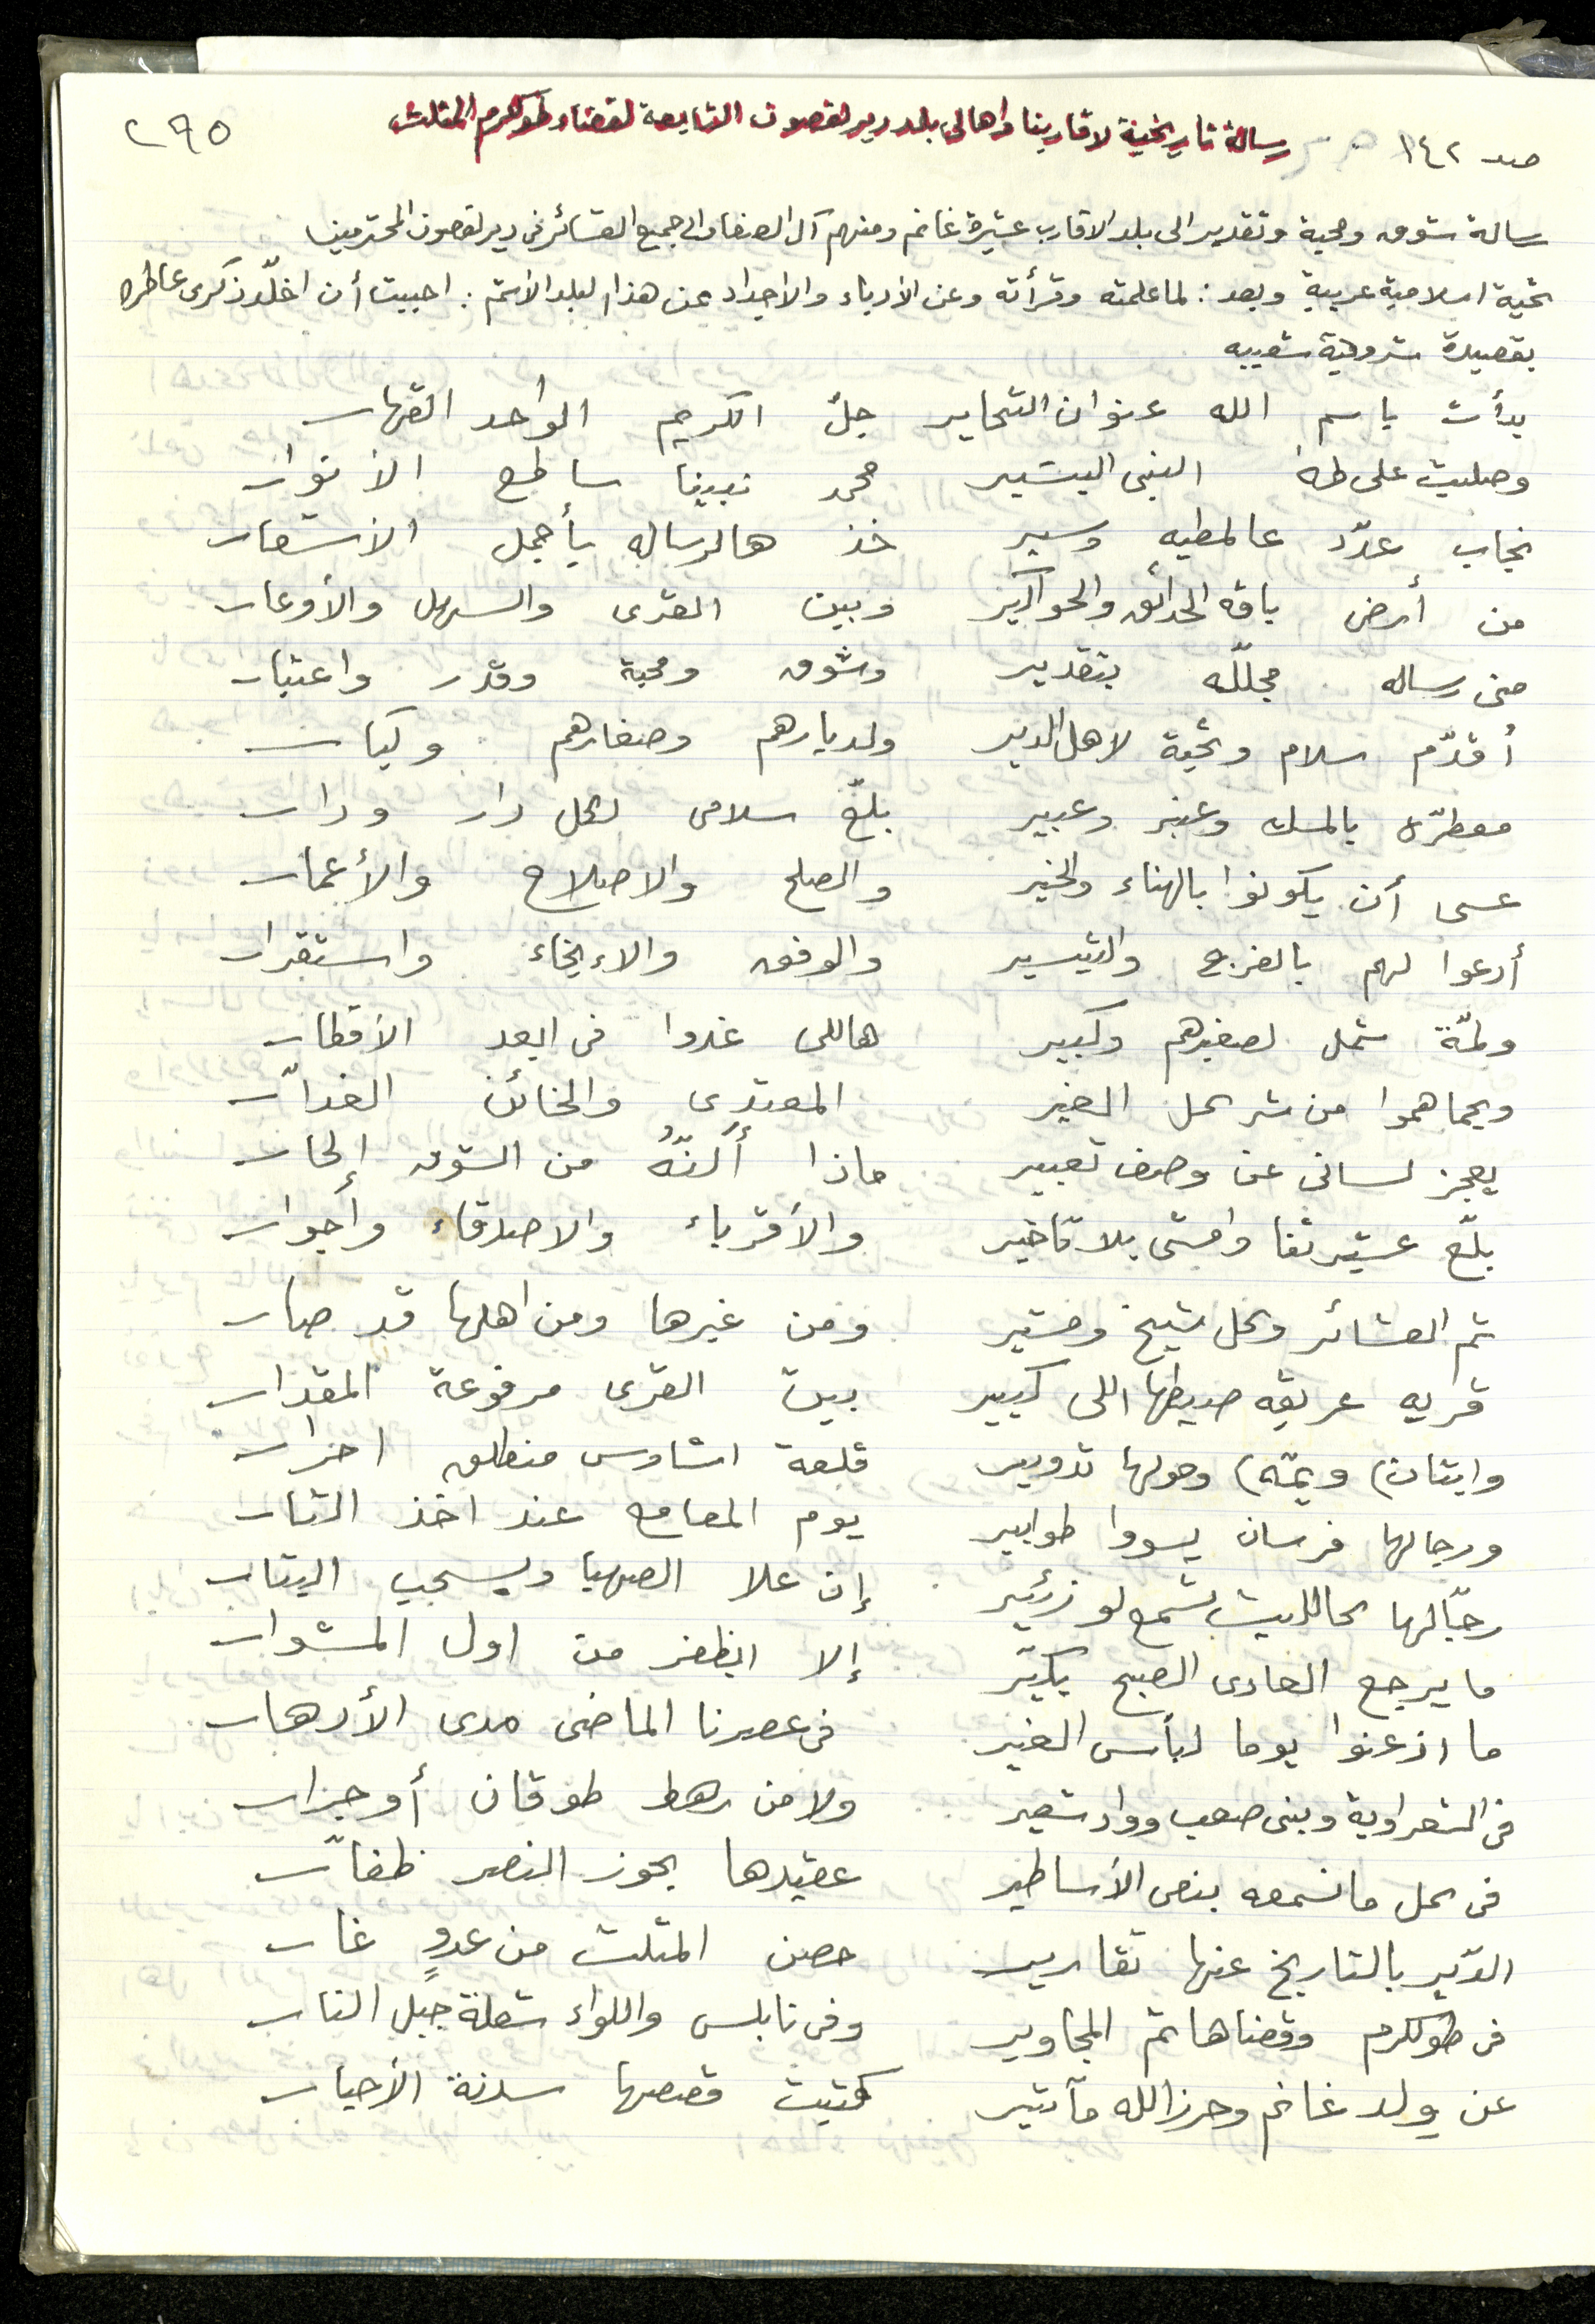 رسالة تاريخية لاقاربنا واهالي بلد دير الغصون التابعة لقضاء طولكرم المثلث
صد ١٤٢
٢٩٥
رسالة شوق ومحبة وتقدير الى بلد الاقارب عشيرة غانم ومنهم آل الصفا والى جميع العشائر في دير الغصون المحترمين
تحية اسلامية عربية وبعد : لما علمته وقرأته وعن الأدباء والاجداد عن هذا البلد الأشم : احببت أن اخلّد ذكرى عاطره
بقصيدة شروقية شعبيه
بدأت باسم الله عنوان التحارير جلّ الكريم الواحد القهار
وصليت على طه النبي البشير محمد نبينا ساطع الأنوار
نجاب عدّد عالمطيه وسير خذ هالرساله بأجمل الأشعار
من أرض باقه الحدائق والحواكير وبين القرى والسهل والأوعار
مني رساله مجللّه بتقدير وشوق ومحبة وقدر واعتبار
أقدّم سلام وتحية لاهل الدير ولديارهم وصغارهم وكبار
معطرّه بالمسك وعنبر وعبير بلّغ سلامي لكل دار ودار
عسى أن يكونوا بالهناء والخير والصلح والاصلاح والأعمار
أدعوا لهم بالفرج والتيسير والوفق والاءيخاء واستقرار
ولمّة شمل لصغيرهم وكبير هاللي غدوا في ابعد الأقطار
ويحماهموا من شر كل الغير المعتدي والخائن الغدّار
يعجز لساني عن وصف تعبير ماذا أكنّهُ من الشوق إلحار
بلّغ عشيرتنا وامشي بلا تأخير والأقرباء والاصدقاء وأجوار
ثم العشائر وكل شيخ ومشير ومن غيرها ومن اهلها قد صار
قريه عريقه صيطها اللى كبير بين القرى مرفوعة المقدار
وايتان) ويمّه) وحولها تدوير قلعة اشاوس منطلق احرار
ورجالها فرسان يسووا طوابير يوم المعامع عند اخذ الثار
رجّالها كالليث بتسمع لو زئير إن علا الصهبا ويسحب البتار
ما يرجع العادي الصبح بكيّر إلا ابظفر من اول المشوار
ما اذعنوا يوما لبأس الغير في عصرنا الماضي مدى الأدهار
في الشعراوية وبني صعب وواد شعير ولا من رهط طوقان أو جرار
في كل ما نسمعه بنص الأساطير عقيدها يحوز النصر ظفّار
الدّير بالتاريخ عنها تقارير حصن المثلث من عدوٍ غار
في طولكرم وقضاها ثم المجاوير وفي نابلس واللواء شعلة جبل النار
عن ولد غانم وحرز الله مآثير كتبت قصصها سدنة الأحبار